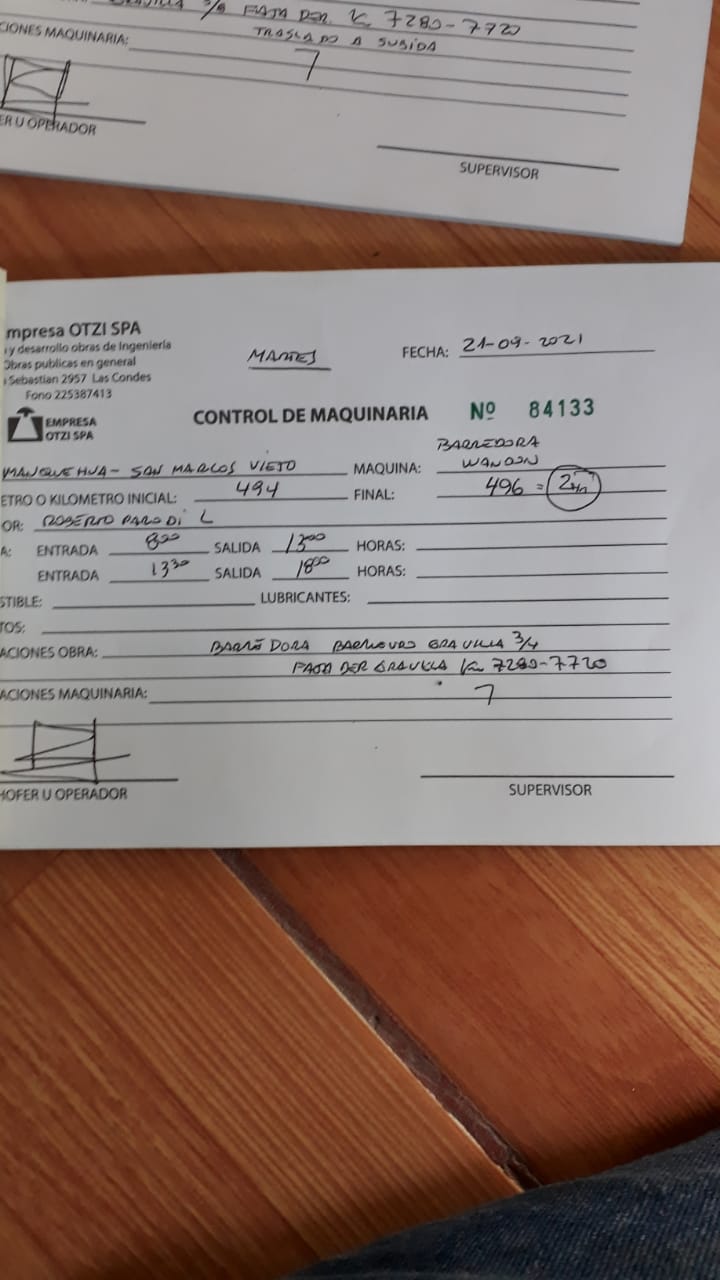 3/4 FAJA DER. K 7280-7720
CIONES MAQUINARIA: TRASLADO A SUBIDA
7
ER U OPERADOR
SUPERVISOR
mpresa OTZI SPA
y desarrollo obras de Ingenierla
Obras publicas en general
Sebastian 2957 Las Condes
Fono 225387413
MARTES
FECHA: 21-09-2021
EMPRESA
OTZI SPA
CONTROL DE MAQUINARIA Nº 84133
MANQUEHUA - SAN MARCOS VIEJO MAQUINA: BARREDORA
WANDON
ETRO O KILOMETRO INICIAL: 494 FINAL: 496 = 2Hr
OR: ROBERTO PARODI L
A: ENTRADA 8:00 SALIDA 13:00 HORAS:
ENTRADA 13:30 SALIDA 18:00 HORAS:
STIBLE: LUBRICANTES:
TOS:
ACIONES OBRA: BARREDORA GRAVILLA 3/4
FAJA DER GRAVILLA K 7280-7720
ACIONES MAQUINARIA: 7
HOFER U OPERADOR
SUPERVISOR